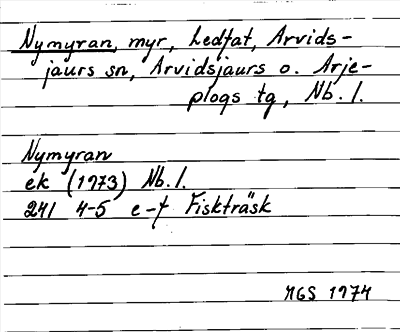 Nymyran, myr, Ledfat, Arvids-
jaurs sn, Arvidsjaurs o. Arje-
plogs tg, Nb. l.
Nymyran
ek (1973) Nb. l.
241 4-5 e-f Fiskträsk
MGS 1974